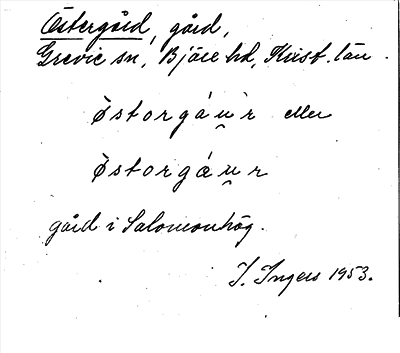 Östergård, gård,
Grevie sn, Bjäre hd, Krist. län.
Östorgáu̯r eller
Östorgáu̯r
gård i Salomonhög.
I. Ingers 1953.